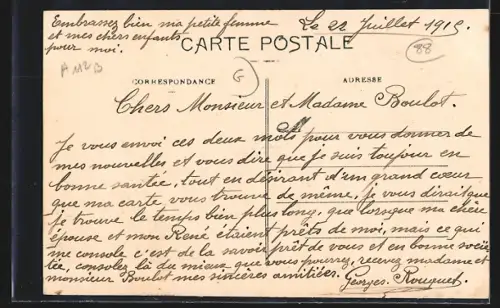 Embrassez bien ma petite femme
et mes chers enfants
pour moi.
Le 22 Juillet 1915.
CARTE POSTALE
88
A112B
G
CORRESPONDANCE
ADRESSE
Chers Monsieur et Madame Boulot.
Je vous envoi ces deux mots pour vous donner de
mes nouvelles et vous dire que je suis toujour en
bonne santée, tout en désirant d'un grand cœur
que ma carte vous trouve de même, je vous dirait que
je trouve le temps bien plus long, que lorsque ma chère
épouse et mon René étaient prêts de moi, mais ce qui
me console c'est de la savoir prêt de vous et en bonne socié
tée, consolez là du mieux que vous pourrez, recevez madame et
monsieur Boulot mes sincères amitiées. Georges Rouquet.